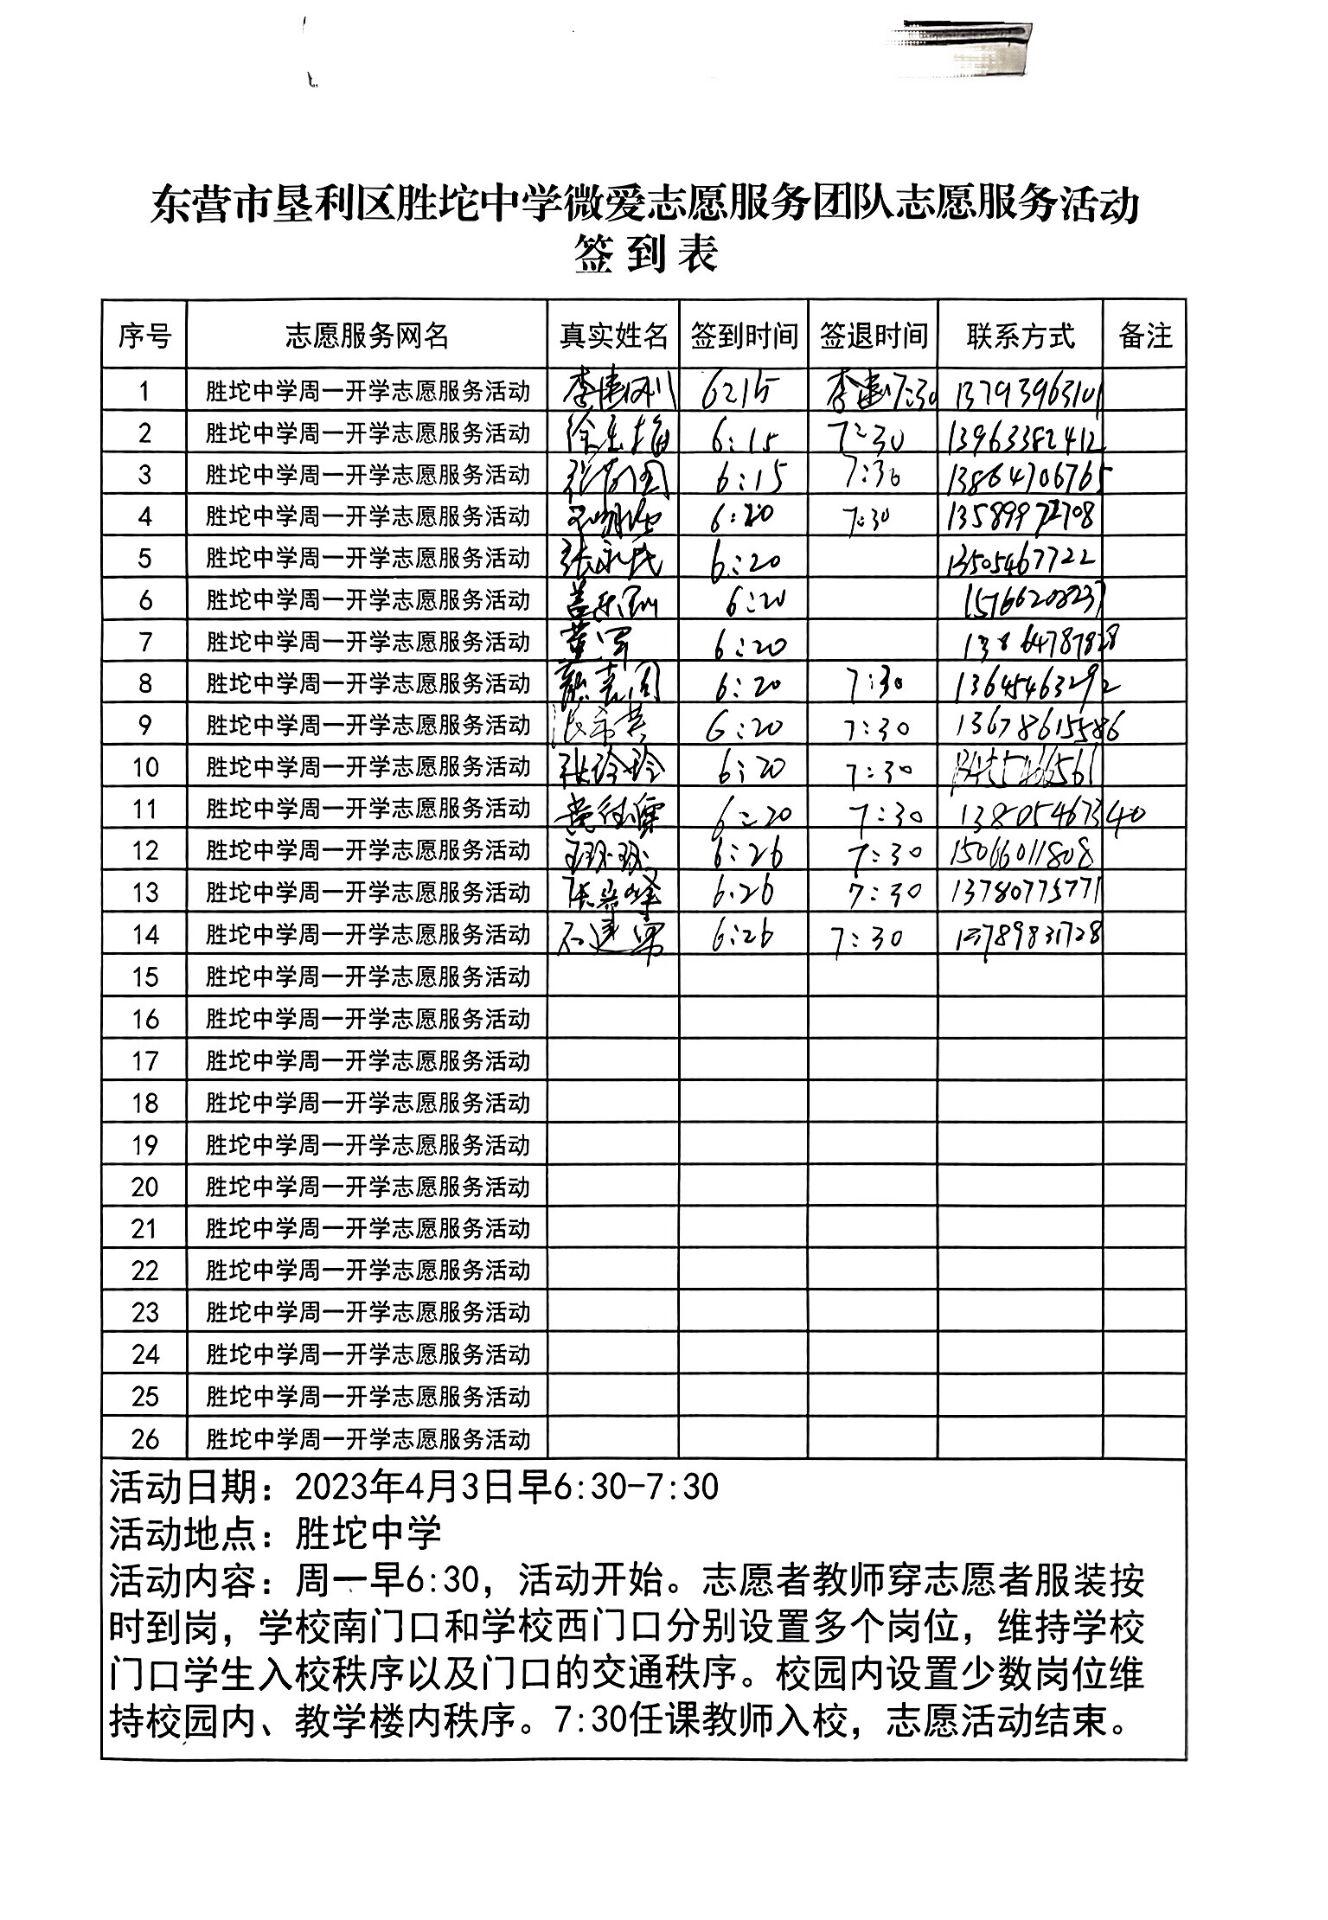 东营市垦利区胜坨中学微爱志愿服务团队志愿服务活动
签到表
序号 志愿服务网名 真实姓名 签到时间 签退时间 联系方式 备注
1 胜坨中学周一开学志愿服务活动 6:15 7:30 13793963101
2 胜坨中学周一开学志愿服务活动 6:15 7:30 13963382412
3 胜坨中学周一开学志愿服务活动 6:15 7:30 13864706765
4 胜坨中学周一开学志愿服务活动 6:20 7:30 13589972708
5 胜坨中学周一开学志愿服务活动 张永民 6:20 13505467722
6 胜坨中学周一开学志愿服务活动 6:20 15766208237
7 胜坨中学周一开学志愿服务活动 董军 6:20
8 胜坨中学周一开学志愿服务活动 6:20 7:30 13645463292
9 胜坨中学周一开学志愿服务活动 6:20 7:30 13678615586
10 胜坨中学周一开学志愿服务活动 张玲玲 6:20 7:30
11 胜坨中学周一开学志愿服务活动 6:20 7:30 13805467340
12 胜坨中学周一开学志愿服务活动 6:26 7:30 15066011808
13 胜坨中学周一开学志愿服务活动 6:26 7:30 13780775771
14 胜坨中学周一开学志愿服务活动 6:26 7:30 13789831728
15 胜坨中学周一开学志愿服务活动
16 胜坨中学周一开学志愿服务活动
17 胜坨中学周一开学志愿服务活动
18 胜坨中学周一开学志愿服务活动
19 胜坨中学周一开学志愿服务活动
20 胜坨中学周一开学志愿服务活动
21 胜坨中学周一开学志愿服务活动
22 胜坨中学周一开学志愿服务活动
23 胜坨中学周一开学志愿服务活动
24 胜坨中学周一开学志愿服务活动
25 胜坨中学周一开学志愿服务活动
26 胜坨中学周一开学志愿服务活动
活动日期：2023年4月3日早6:30-7:30
活动地点：胜坨中学
活动内容：周一早6:30，活动开始。志愿者教师穿志愿者服装按
时到岗，学校南门口和学校西门口分别设置多个岗位，维持学校
门口学生入校秩序以及门口的交通秩序。校园内设置少数岗位维
持校园内、教学楼内秩序。7:30任课教师入校，志愿活动结束。